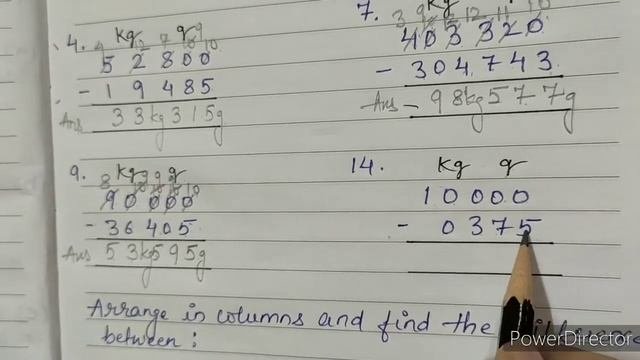 4. kg g
4 12 7 9 10
5 2 8 0 0
- 1 9 4 8 5
Ans 33kg315g
7. kg
403 320
- 304 743
Ans - 98kg577g
9. kg g
8 9 9 9 10
90 000
- 36 405
Ans 53kg595g
14. kg g
1 0 0 0 0
- 0 3 7 5
Arrange in columns and find the
between:
PowerDirector